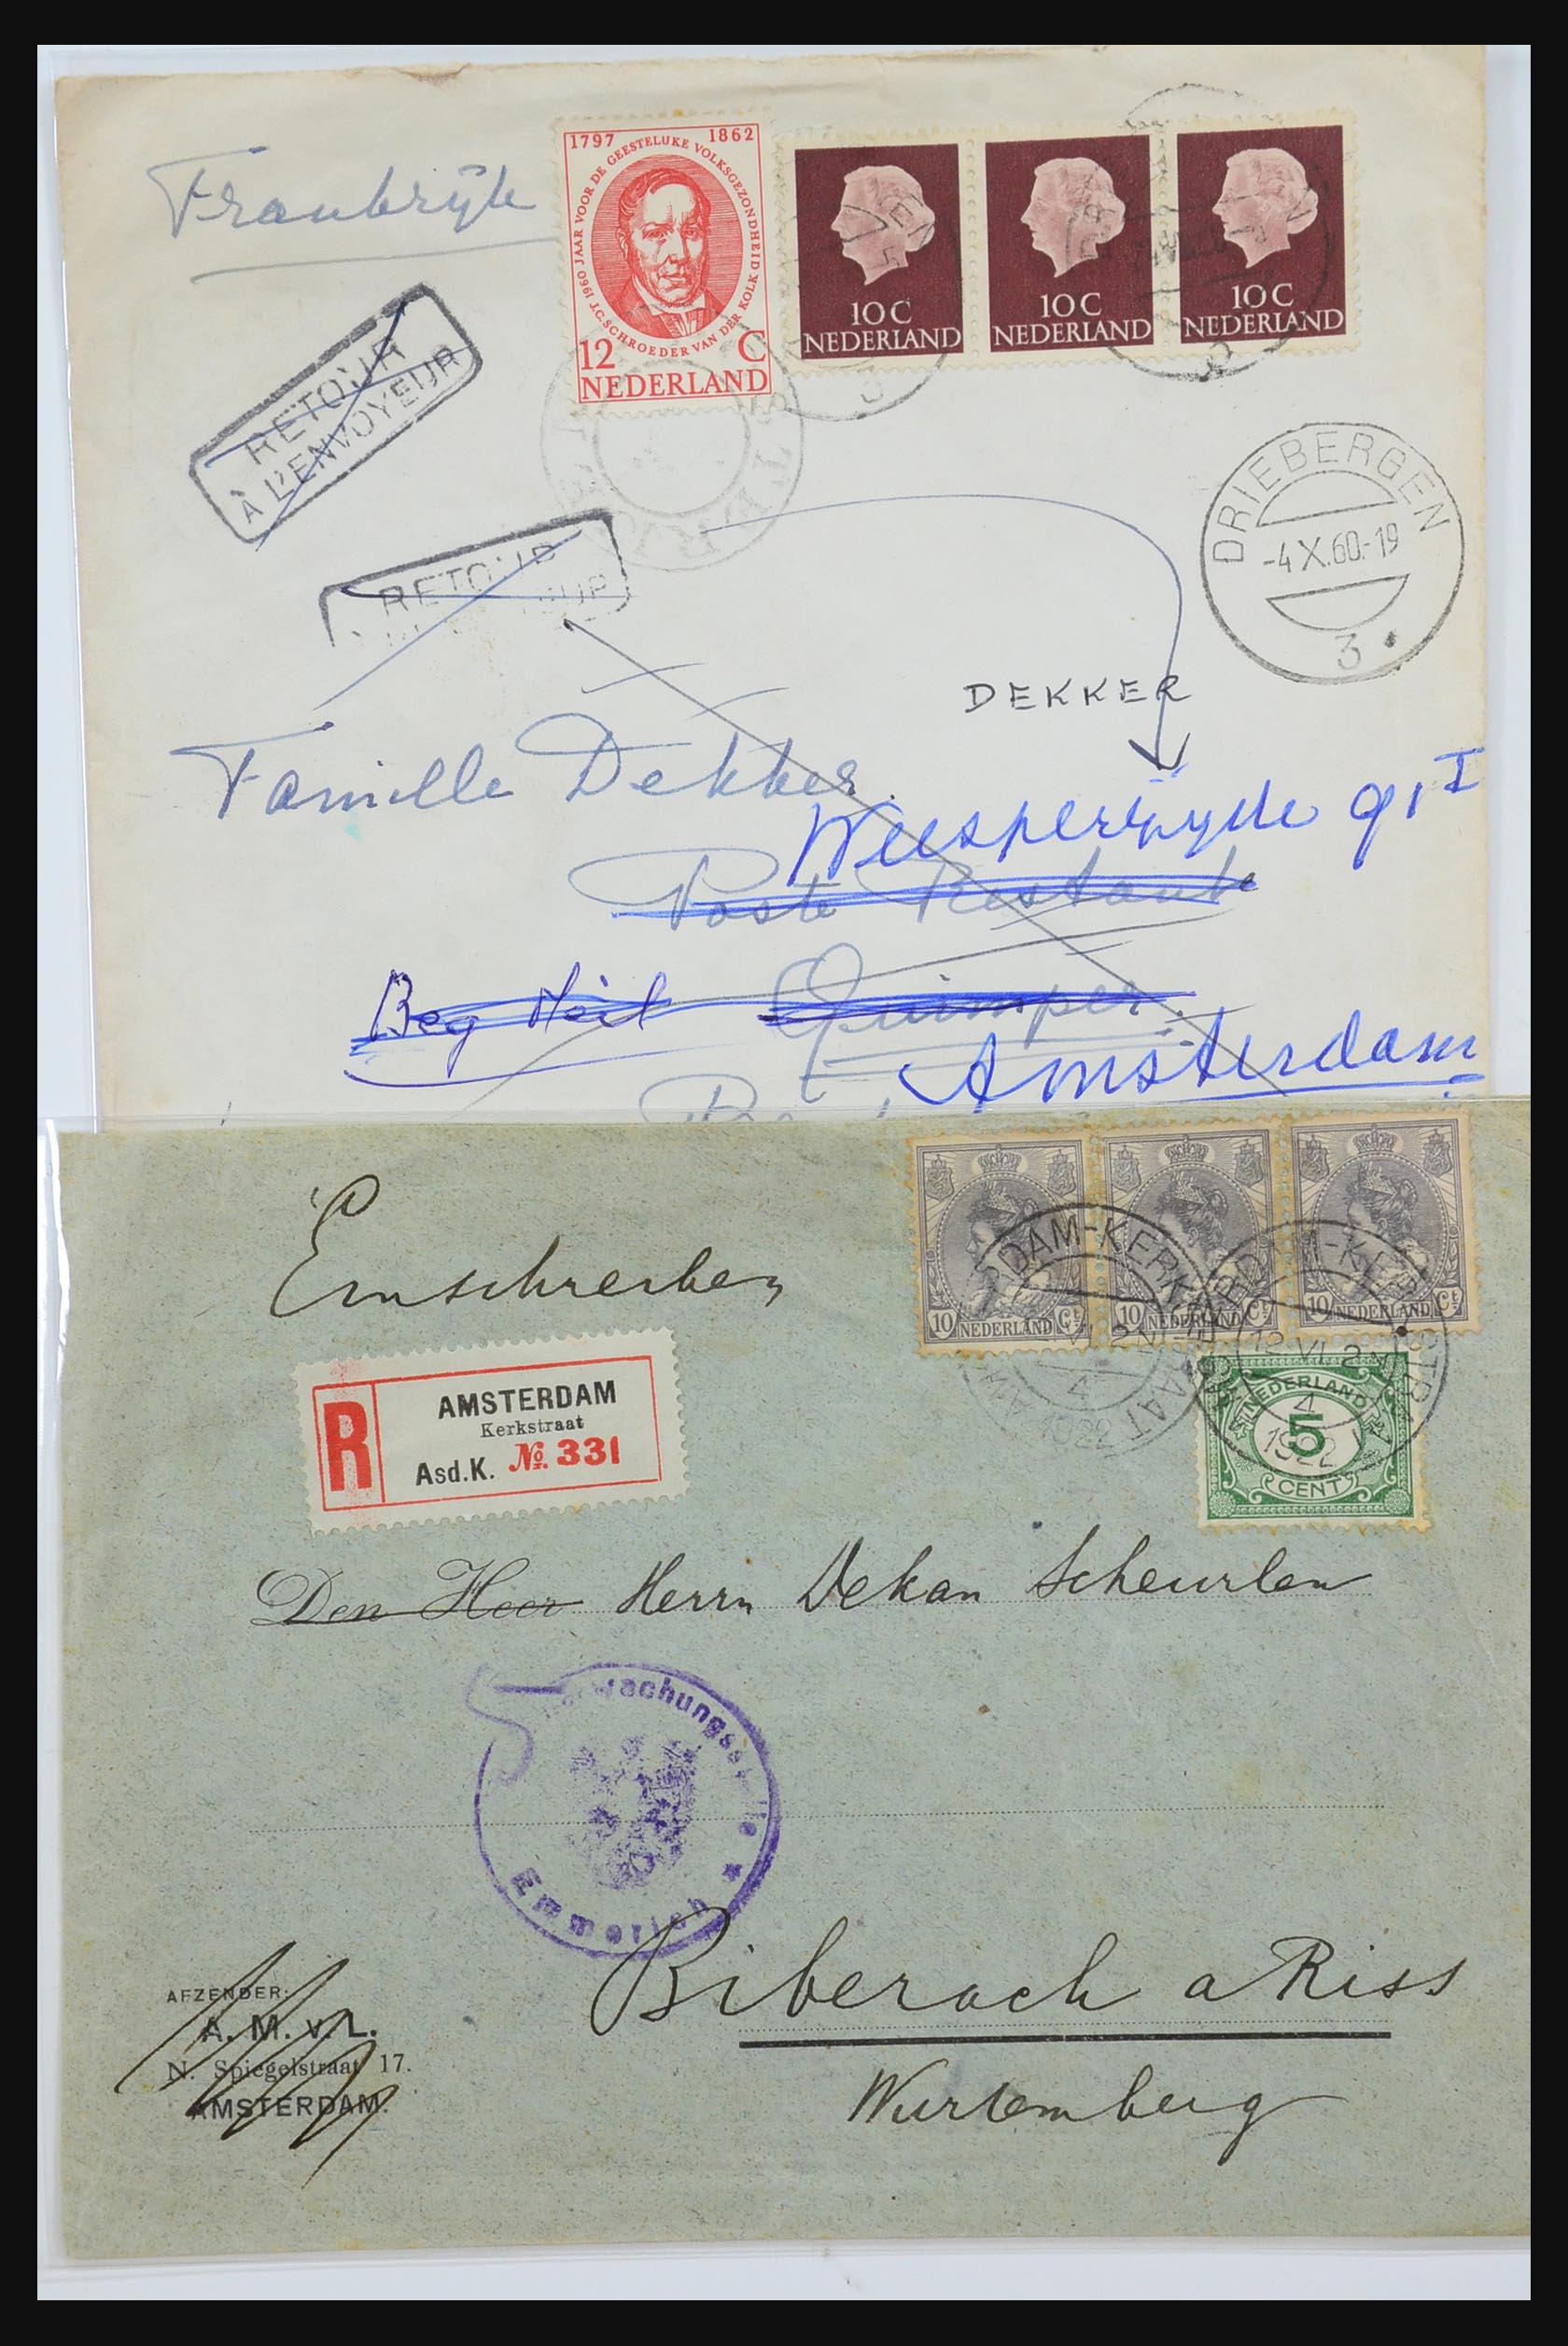 Frankrijk
1797 1862
1960 JAAR VOOR DE GEESTELIJKE VOLKSGEZONDHEID
J.C. SCHROEDER VAN DER KOLK
12 C
NEDERLAND
10 C
NEDERLAND
10 C
NEDERLAND
10 C
NEDERLAND
RETOUR
À L'ENVOYEUR
RETOUR
DRIEBERGEN
-4 X.60.-19
3
DEKKER
Famille Dekker
Weesperzyde 91 I
Poste Restante
Beg Meil Quimper
Amsterdam
Einschreiben
10 NEDERLAND Ct
10 NEDERLAND Ct
10 NEDERLAND Ct
DAM-KERK
4
1922
12 VI 2N
4
1922
NEDERLAND
5
CENT
R
AMSTERDAM
Kerkstraat
Asd.K. No. 331
Den Heer Herrn Dekan Scheurlen
Emmerich
Biberach a Riss
Wurtemberg
AFZENDER:
A. M. v. L.
N. Spiegelstraat 17.
AMSTERDAM.